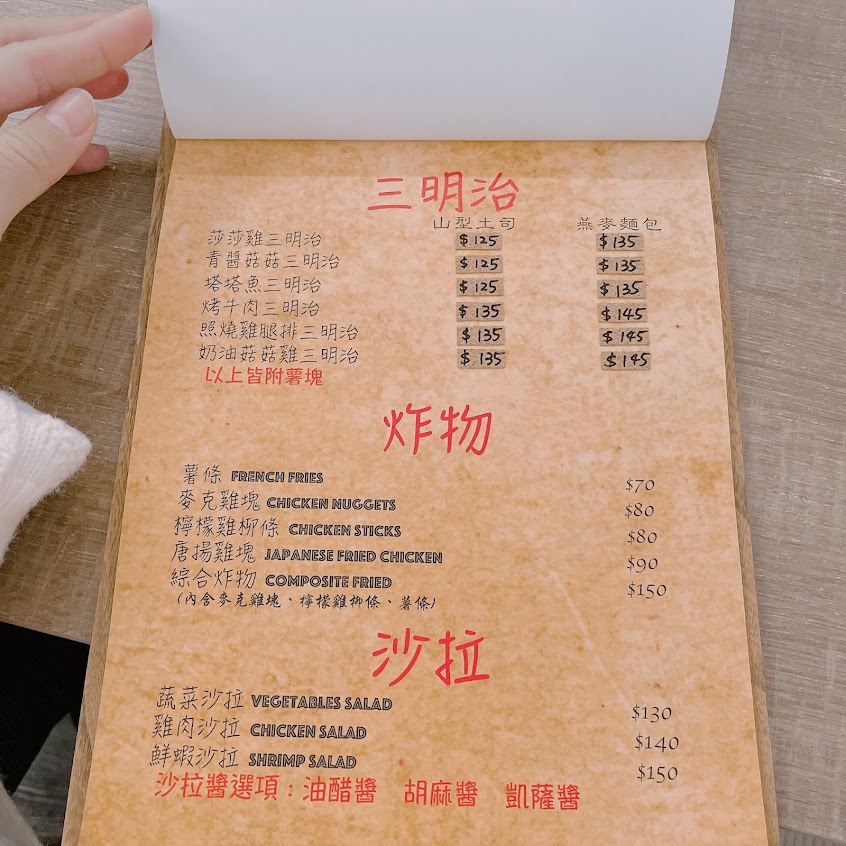 三明治
山型土司 燕麥麵包
莎莎雞三明治 $125 $135
青醬菇菇三明治 $125 $135
塔塔魚三明治 $125 $135
烤牛肉三明治 $135 $145
照燒雞腿排三明治 $135 $145
奶油菇菇雞三明治 $135 $145
以上皆附薯塊
炸物
薯條 FRENCH FRIES $70
麥克雞塊 CHICKEN NUGGETS $80
檸檬雞柳條 CHICKEN STICKS $80
唐揚雞塊 JAPANESE FRIED CHICKEN $90
綜合炸物 COMPOSITE FRIED $150
(內含麥克雞塊、檸檬雞柳條、薯條)
沙拉
蔬菜沙拉 VEGETABLES SALAD $130
雞肉沙拉 CHICKEN SALAD $140
鮮蝦沙拉 SHRIMP SALAD $150
沙拉醬選項:油醋醬 胡麻醬 凱薩醬